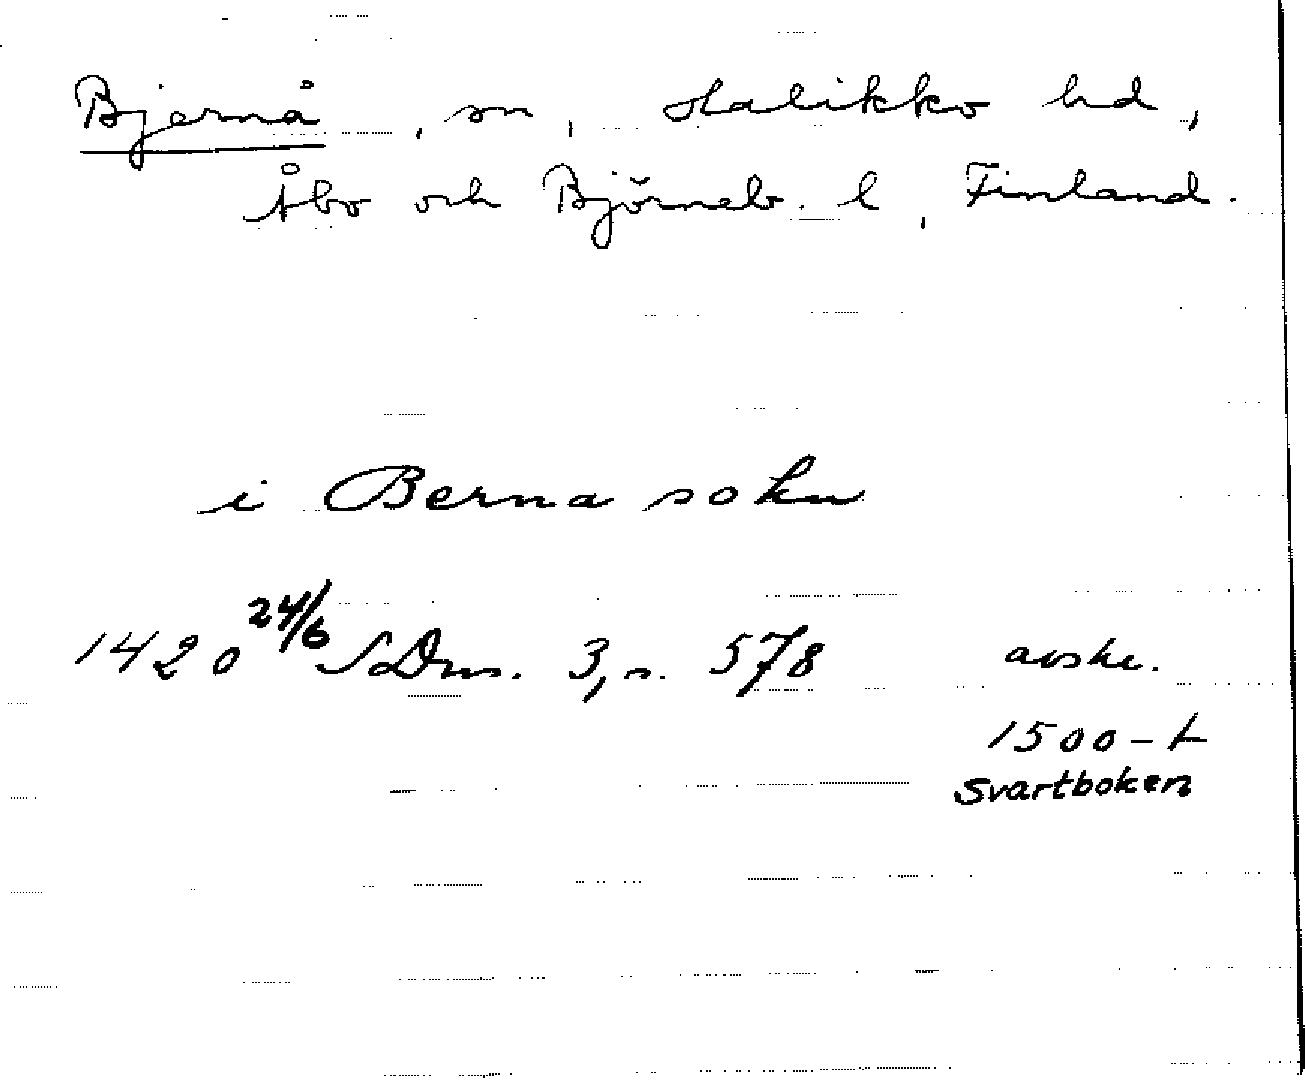 Bjärnå, sn, Halikko hd,
Åbo och Björneb. l, Finland.
i Berna sokn
1420 24/6 SDns. 3, s. 578 avskr.
1500-t
Svartboken